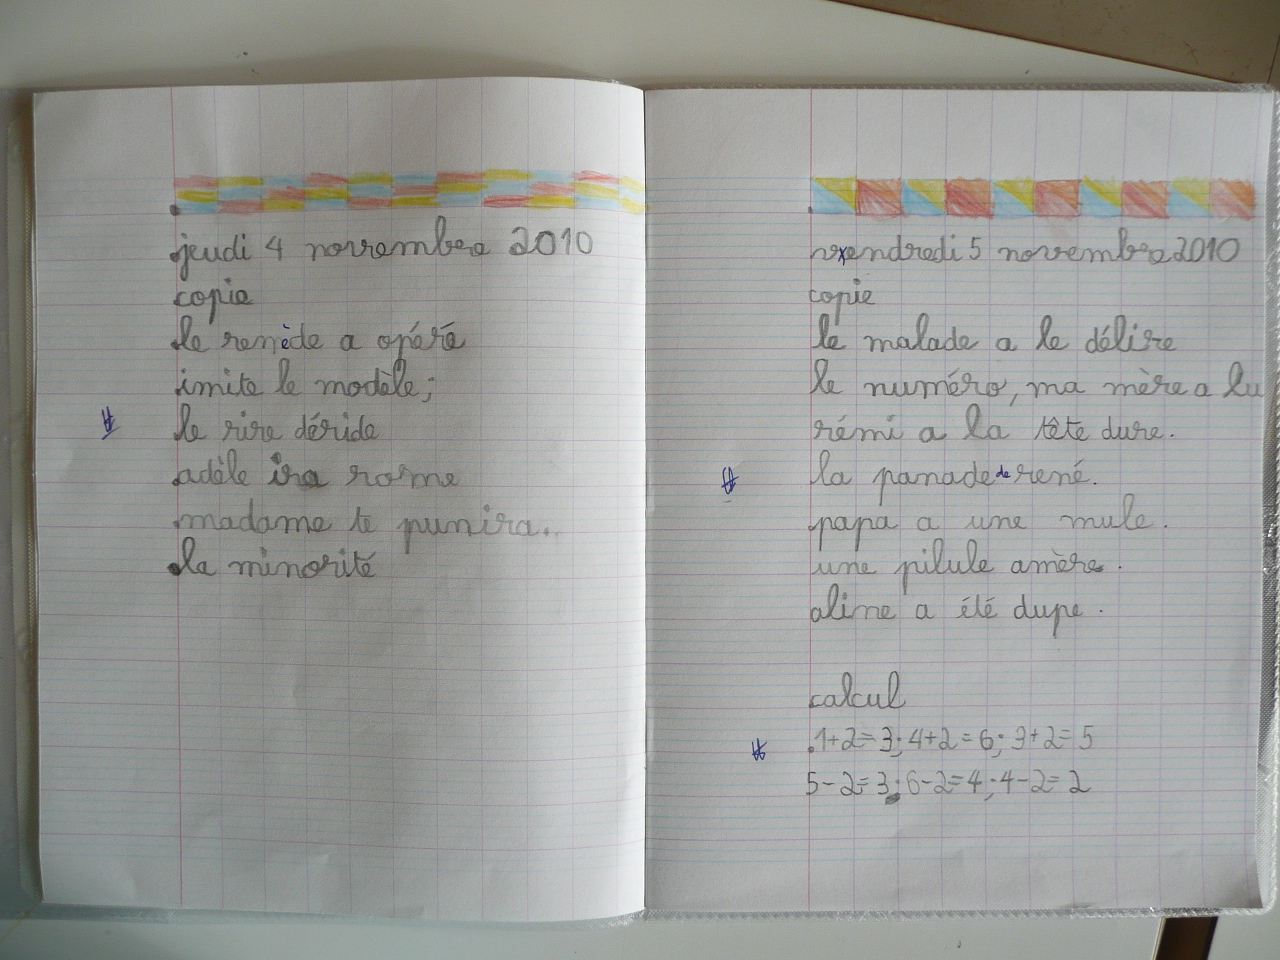 jeudi 4 novembre 2010
copie
le remède a opéré
imite le modèle;
le rire déride
adèle ira rome
madame te punira..
la minorité
vxendredi 5 novembre 2010
copie
le malade a le délire
le numéro, ma mère a lu
rémi a la tête dure.
la panade de rené.
papa a une mule.
une pilule amère.
aline a été dupe.
calcul
1+2=3; 4+2=6; 3+2=5
5-2=3; 6-2=4; 4-2=2